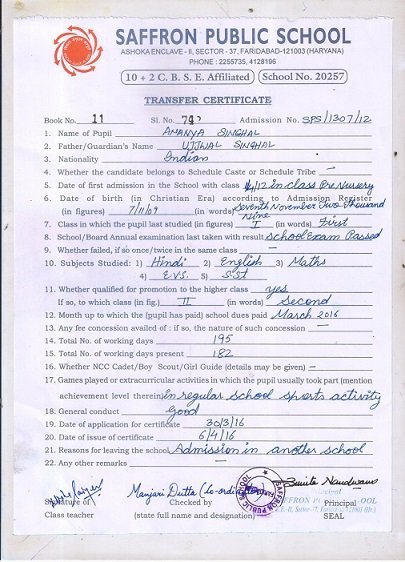 SAFFRON PUBLIC SCHOOL
ASHOKA ENCLAVE - II, SECTOR - 37, FARIDABAD-121003 (HARYANA)
PHONE : 2255735, 4128196
10 + 2 C. B. S. E. Affiliated School No. 20257
TRANSFER CERTIFICATE
Book No. 11 Sl. No. Admission No. SPS/1307/12
1. Name of Pupil ANANYA SINGHAL
2. Father/Guardian's Name UJJWAL SINGHAL
3. Nationality Indian
4. Whether the candidate belongs to Schedule Caste or Schedule Tribe —
5. Date of first admission in the School with class /12 in class Pre Nursery
6. Date of birth (in Christian Era) according to Admission Register
(in figures) 7/11/09 (in words) Seventh November Two Thousand Nine
7. Class in which the pupil last studied (in figures) I (in words) First
8. School/Board Annual examination last taken with result School Exam Passed
9. Whether failed, if so once/twice in the same class —
10. Subjects Studied : 1) Hindi 2) English 3) Maths
4) E.V.S. 5) S.St
11. Whether qualified for promotion to the higher class yes
If so, to which class (in fig.) II (in words) Second
12. Month up to which the (pupil has paid) school dues paid March 2016
13. Any fee concession availed of : if so, the nature of such concession —
14. Total No. of working days 195
15. Total No. of working days present 182
16. Whether NCC Cadet/Boy Scout/Girl Guide (details may be given) —
17. Games played or extracurricular activities in which the pupil usually took part (mention
achievement level therein) in regular school sports activity
18. General conduct Good
19. Date of application for certificate 30/3/16
20. Date of issue of certificate 6/4/16
21. Reasons for leaving the school Admission in another school
22. Any other remarks —
Manjari Dutta (Co-ordinator) Sunita Nandwani
Signature of Checked by Principal
Class teacher (state full name and designation) SEAL
SAFFRON PUBLIC SCHOOL